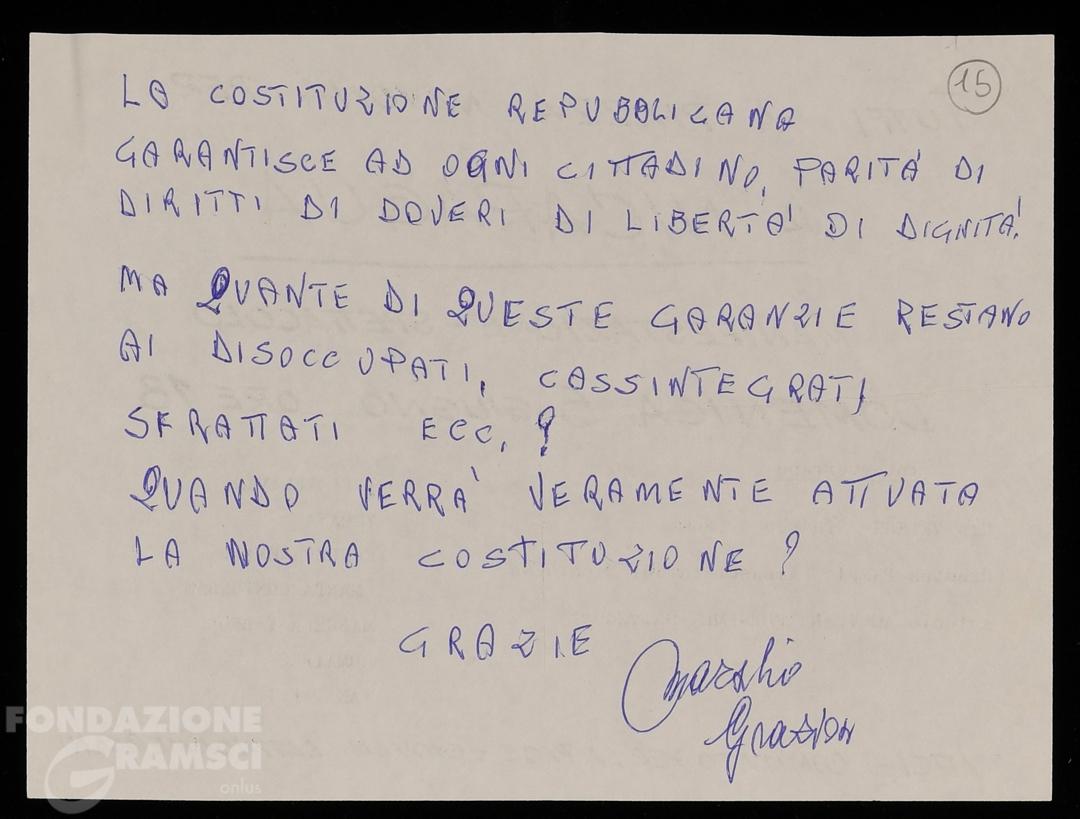 15
LA COSTITUZIONE REPUBBLICANA
GARANTISCE AD OGNI CITTADINO, PARITA' DI
DIRITTI DI DOVERI DI LIBERTA' DI DIGNITA'.
MA QUANTE DI QUESTE GARANZIE RESTANO
AI DISOCCUPATI, CASSINTEGRATI,
SFRATTATI ECC. ?
QUANDO VERRA' VERAMENTE ATTUATA
LA NOSTRA COSTITUZIONE ?
GRAZIE
FONDAZIONE
GRAMSCI
onlus